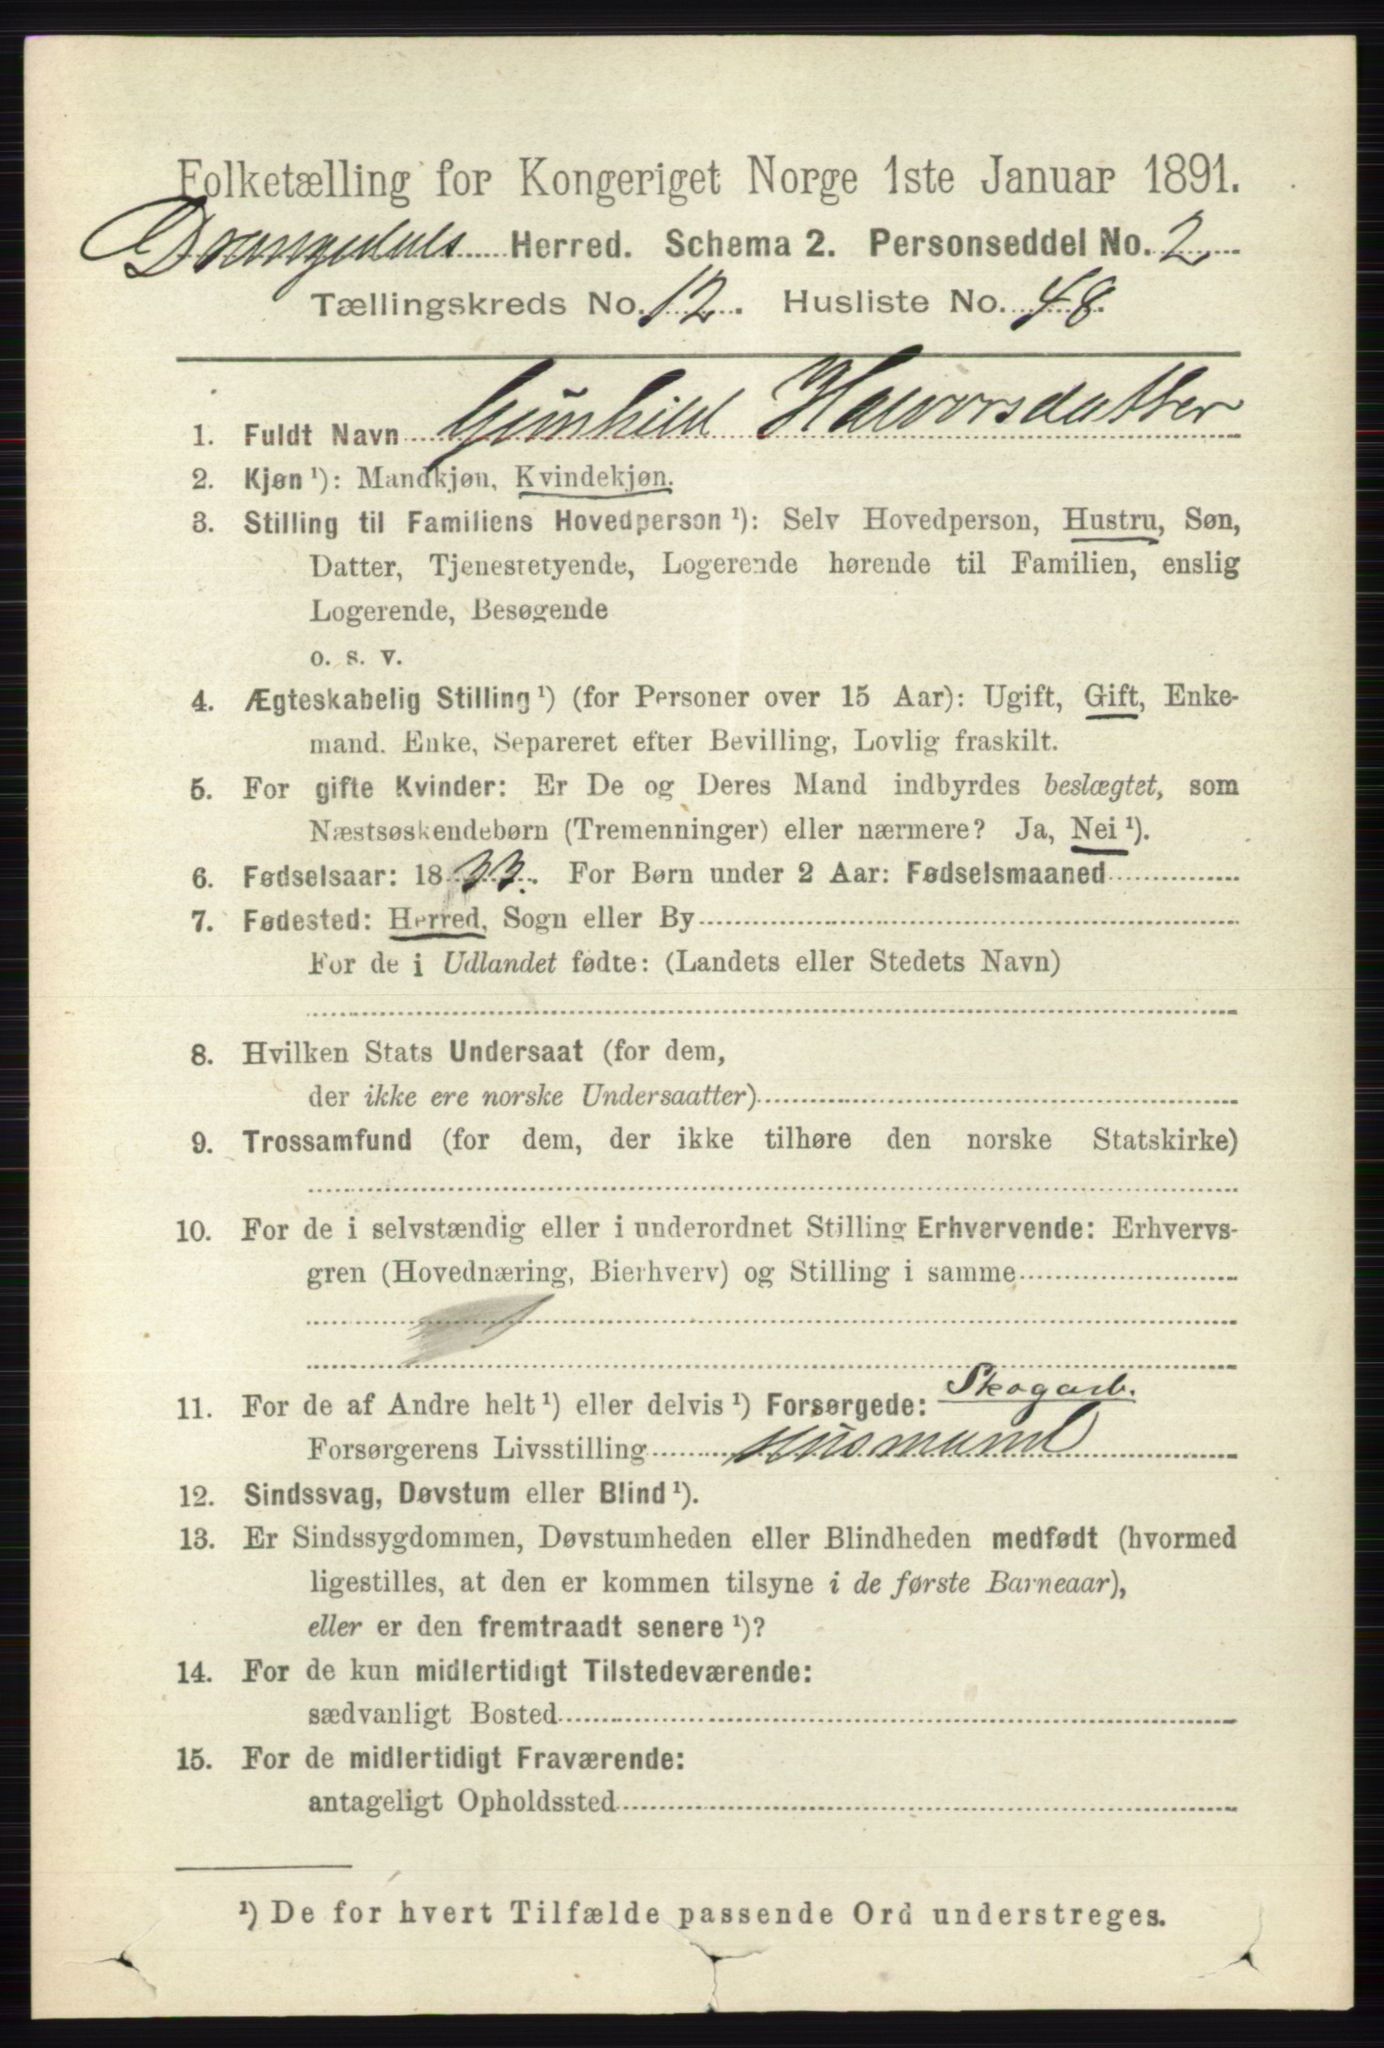 Folketælling for Kongeriget Norge 1ste Januar 1891.
Drangedals Herred. Schema 2. Personseddel No. 2
Tællingskreds No. 12. Husliste No. 48.
1. Fuldt Navn Gunhild Halvorsdatter
2. Kjøn¹): Mandkjøn, Kvindekjøn.
3. Stilling til Familiens Hovedperson¹): Selv Hovedperson, Hustru, Søn,
Datter, Tjenestetyende, Logerende hørende til Familien, enslig
Logerende, Besøgende
o. s. v.
4. Ægteskabelig Stilling¹) (for Personer over 15 Aar): Ugift, Gift, Enke-
mand. Enke, Separeret efter Bevilling, Lovlig fraskilt.
5. For gifte Kvinder: Er De og Deres Mand indbyrdes beslægtet, som
Næstsøskendebørn (Tremenninger) eller nærmere? Ja, Nei¹).
6. Fødselsaar: 1833. For Børn under 2 Aar: Fødselsmaaned
7. Fødested: Herred, Sogn eller By
For de i Udlandet fødte: (Landets eller Stedets Navn)
8. Hvilken Stats Undersaat (for dem,
der ikke ere norske Undersaatter)
9. Trossamfund (for dem, der ikke tilhøre den norske Statskirke)
10. For de i selvstændig eller i underordnet Stilling Erhvervende: Erhvervs-
gren (Hovednæring, Bierhverv) og Stilling i samme
11. For de af Andre helt¹) eller delvis¹) Forsørgede: Skogarb.
Forsørgerens Livsstilling Husmand
12. Sindssvag, Døvstum eller Blind¹).
13. Er Sindssygdommen, Døvstumheden eller Blindheden medfødt (hvormed
ligestilles, at den er kommen tilsyne i de første Barneaar),
eller er den fremtraadt senere¹)?
14. For de kun midlertidigt Tilstedeværende:
sædvanligt Bosted
15. For de midlertidigt Fraværende:
antageligt Opholdssted
¹) De for hvert Tilfælde passende Ord understreges.